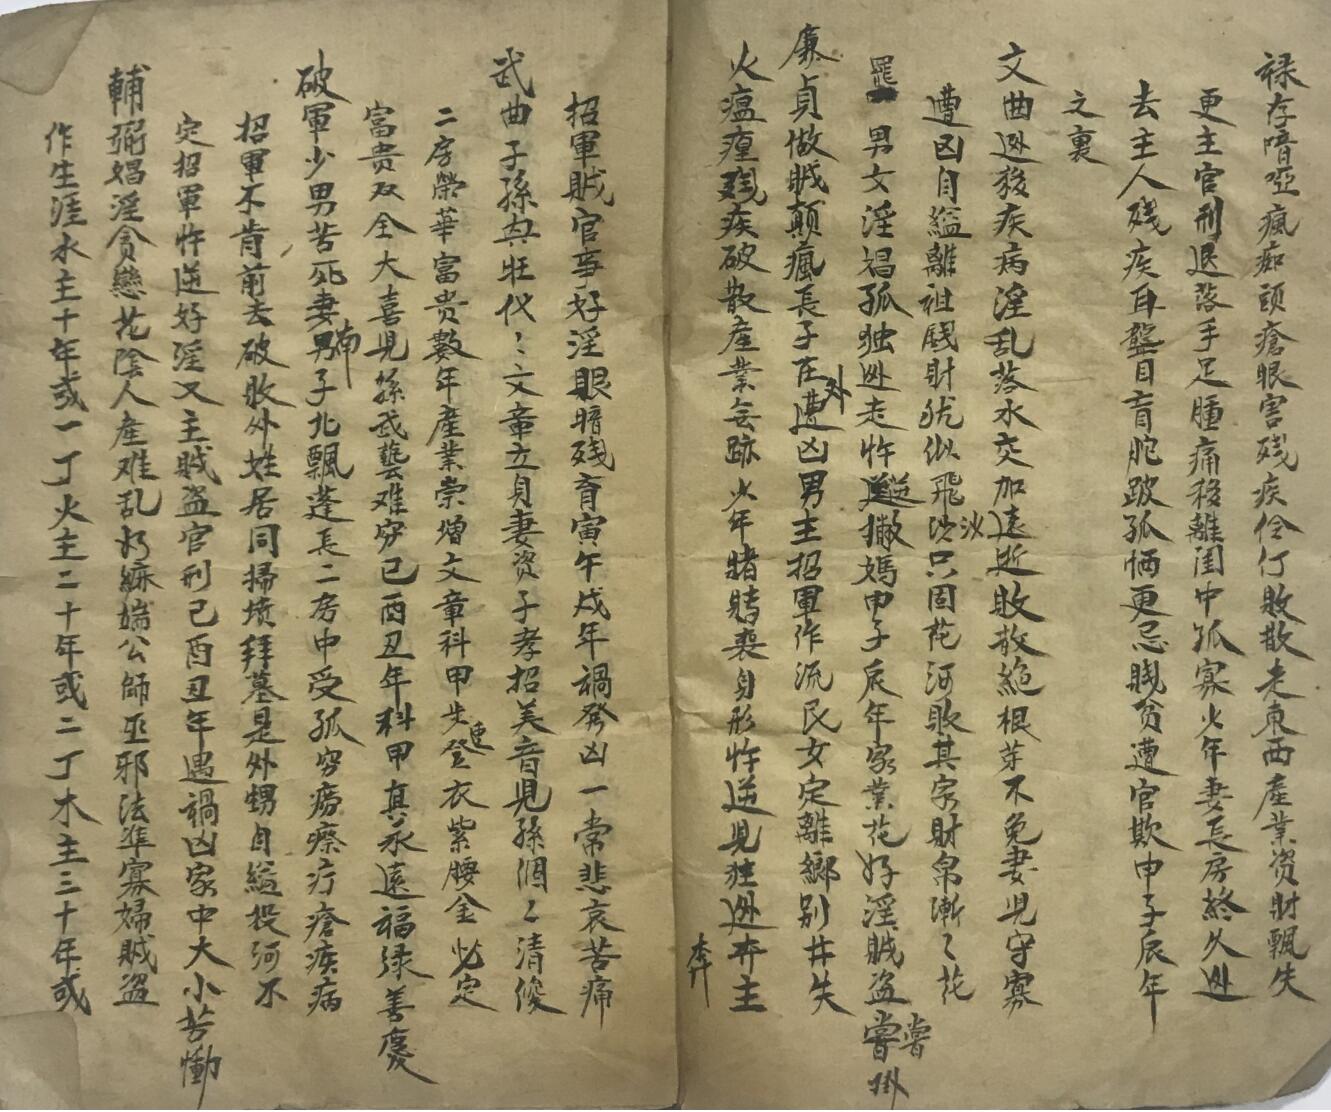 禄存喑哑瘋痴頭瘡眼害残疾伶仃敗散走東西產業資財飄失
更主官刑退落手足腫痛移離闺中孤寡少年妻長房終久迯
去主人残疾耳聾目盲肶跛孤恓更忌賎贫遭官欺申子辰年
之裏
文曲迯移疾病淫乱落水交加遠逝敗教絶根芽不免妻児守寡
遭凶自縊離祖錢財犹似飛沙沙只因花河敗其家財帛漸〻花
男女淫娼孤独迯走忤逆撇媽申子辰年家業花好淫賊盗嘗嘗掛
廉貞做賊顛瘋長子在外遭凶男主招軍作流民女定離鄉别井失
火瘟㾮残疾破散産業無跡少年賭賻喪身形忤逆見狂迯奔主
招軍賊官事好淫眼暗残盲寅午戌年禍發凶一常悲哀苦痛
武曲子孫興旺代〻文章立貞妻资子孝招美音児孫個〻清俊
二房榮華富贵數年産業崇增文章科甲步連登衣紫腰金必定
富贵双全大喜児孫武藝难穷已酉丑年科甲真永遠福绿善慶
破軍少男苦死妻男南子北飄蓬長二房中受孤穷癆瘵疔瘡疾病
招軍不肯前去破敗外姓居同掃墳拜墓是外甥自縊投河不
定招軍忤逆好淫又主賊盗官刑已酉丑年遇禍凶家中大小苦慟
輔弼娼淫贪戀花陰人産难乱朽蔴端公師巫邪法準寡婦賊盗
作生涯水主十年或一丁火主二十年或二丁木主三十年或